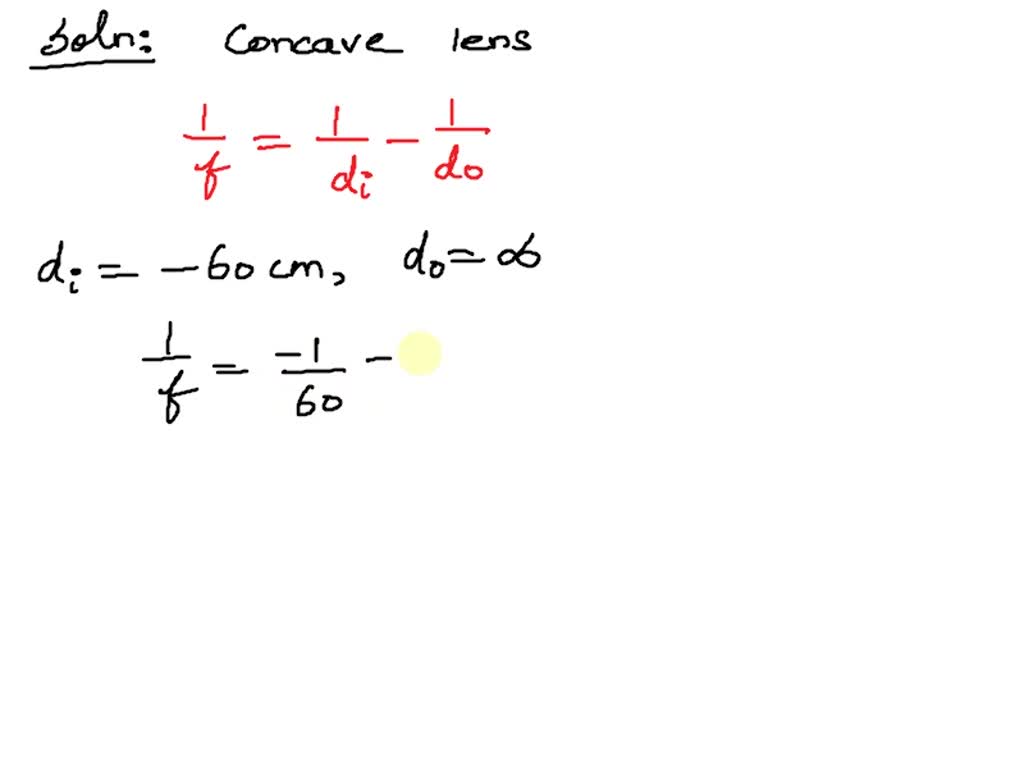 Soln: Concave lens
1/f = 1/di - 1/do
di = -60 cm, do = ∞
1/f = -1/60 -